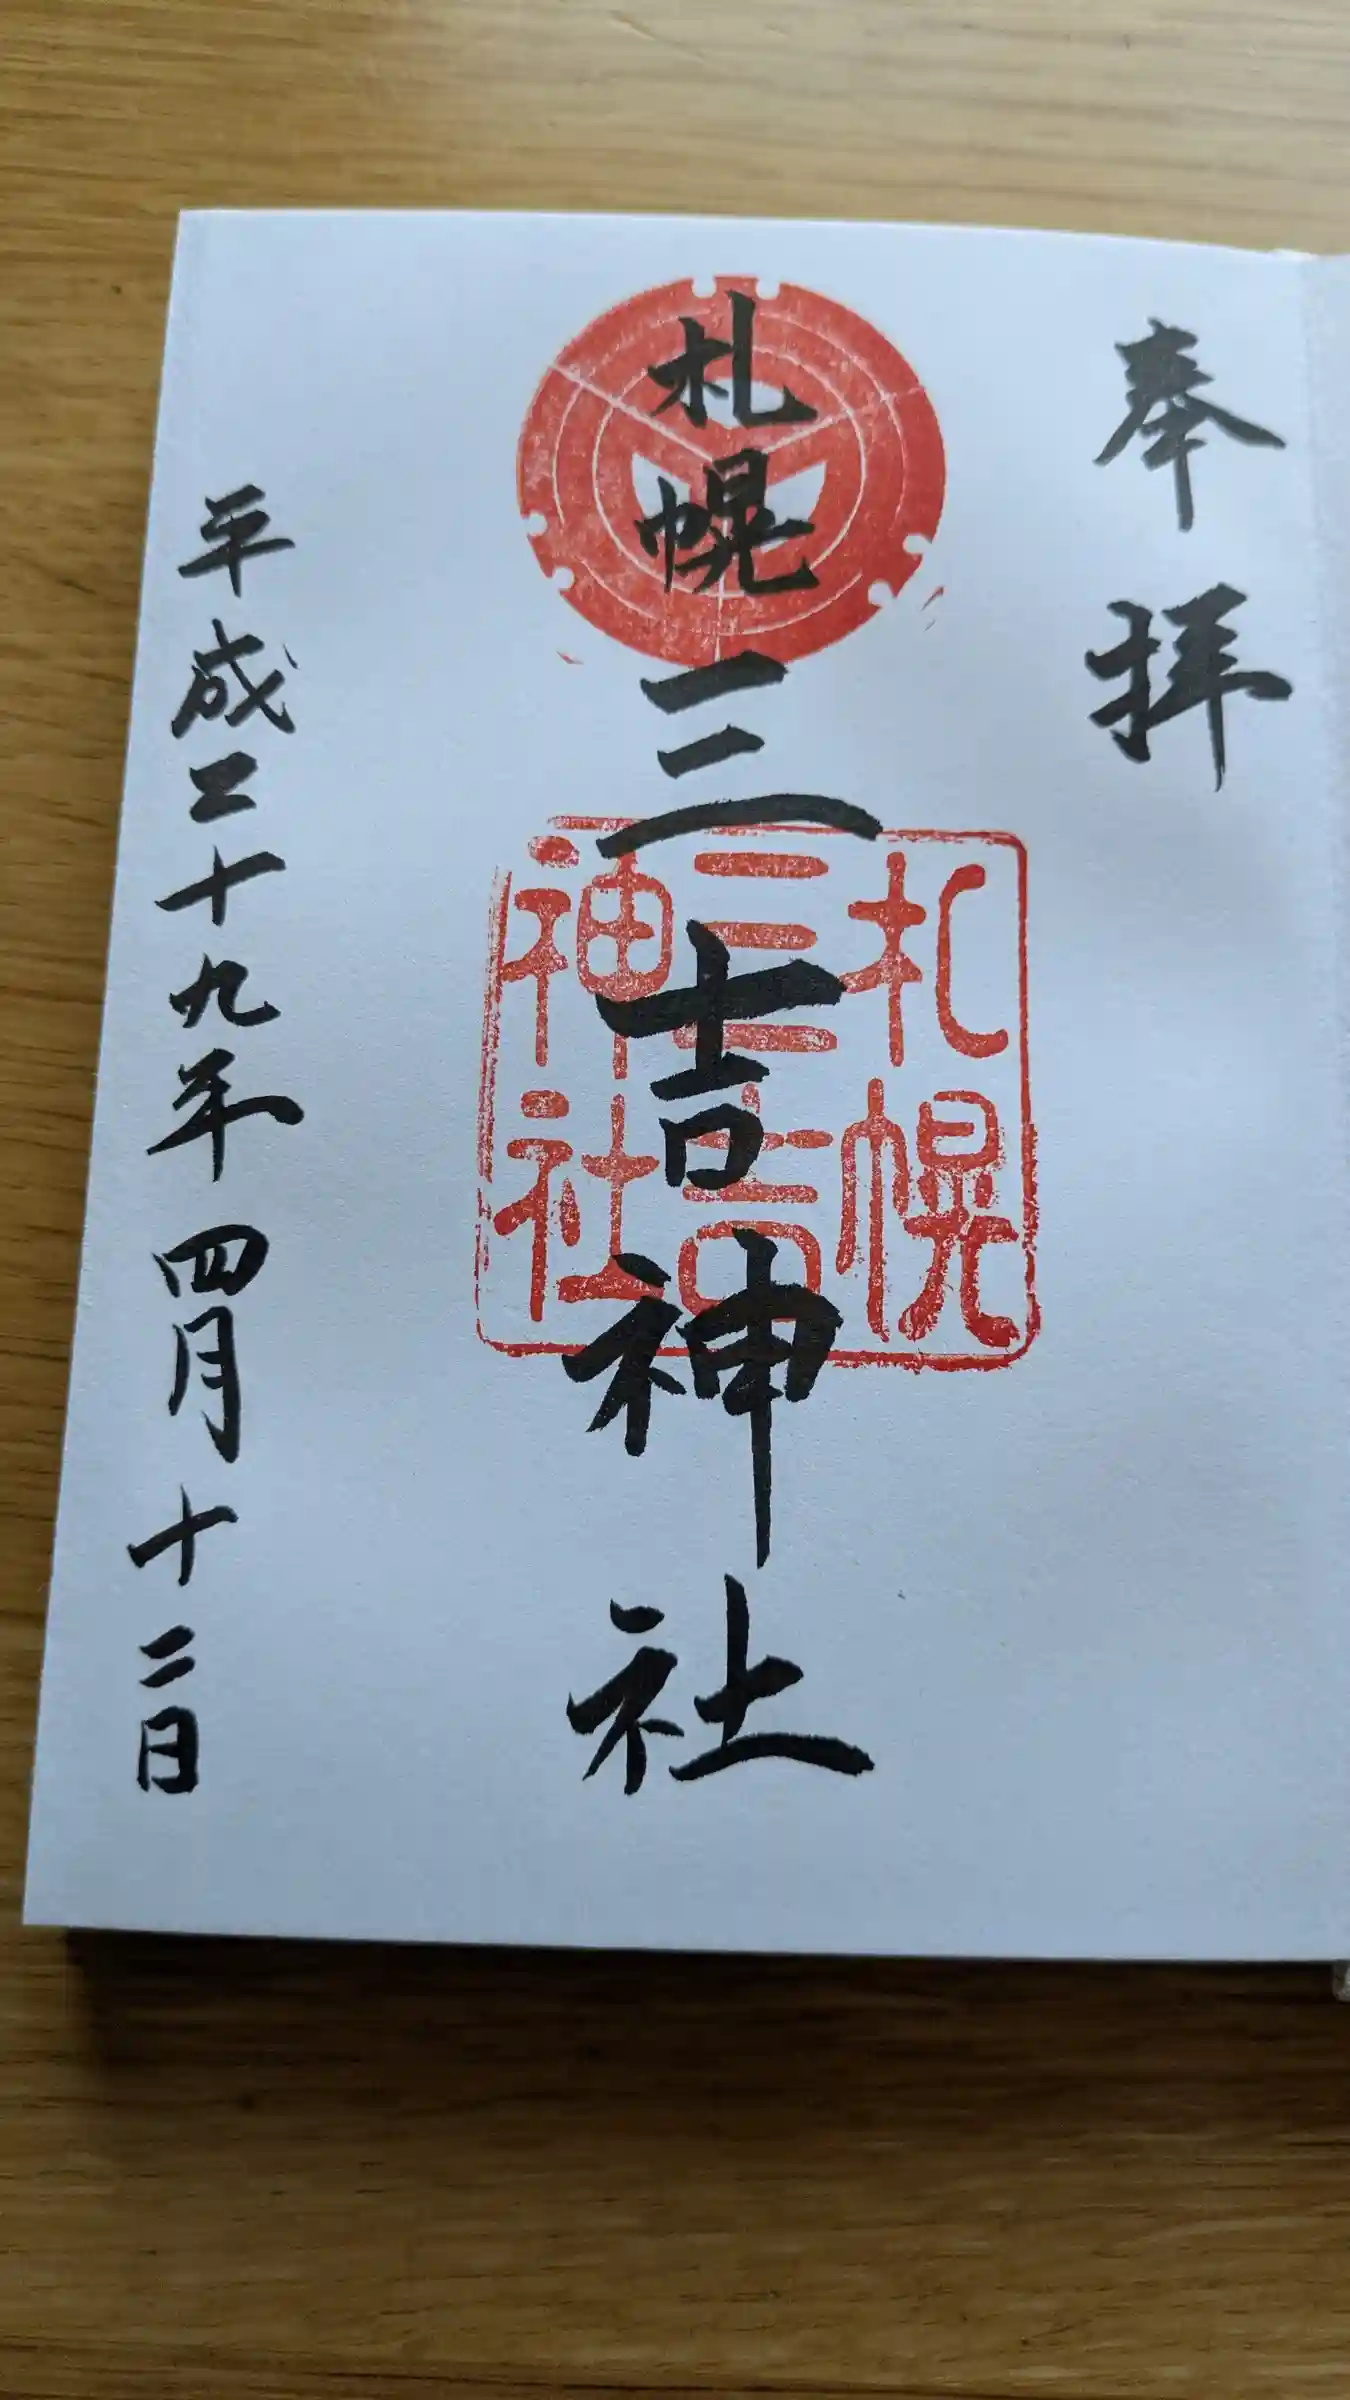 奉拝
札幌三吉神社
札幌
三吉
神社
平成二十九年四月十二日